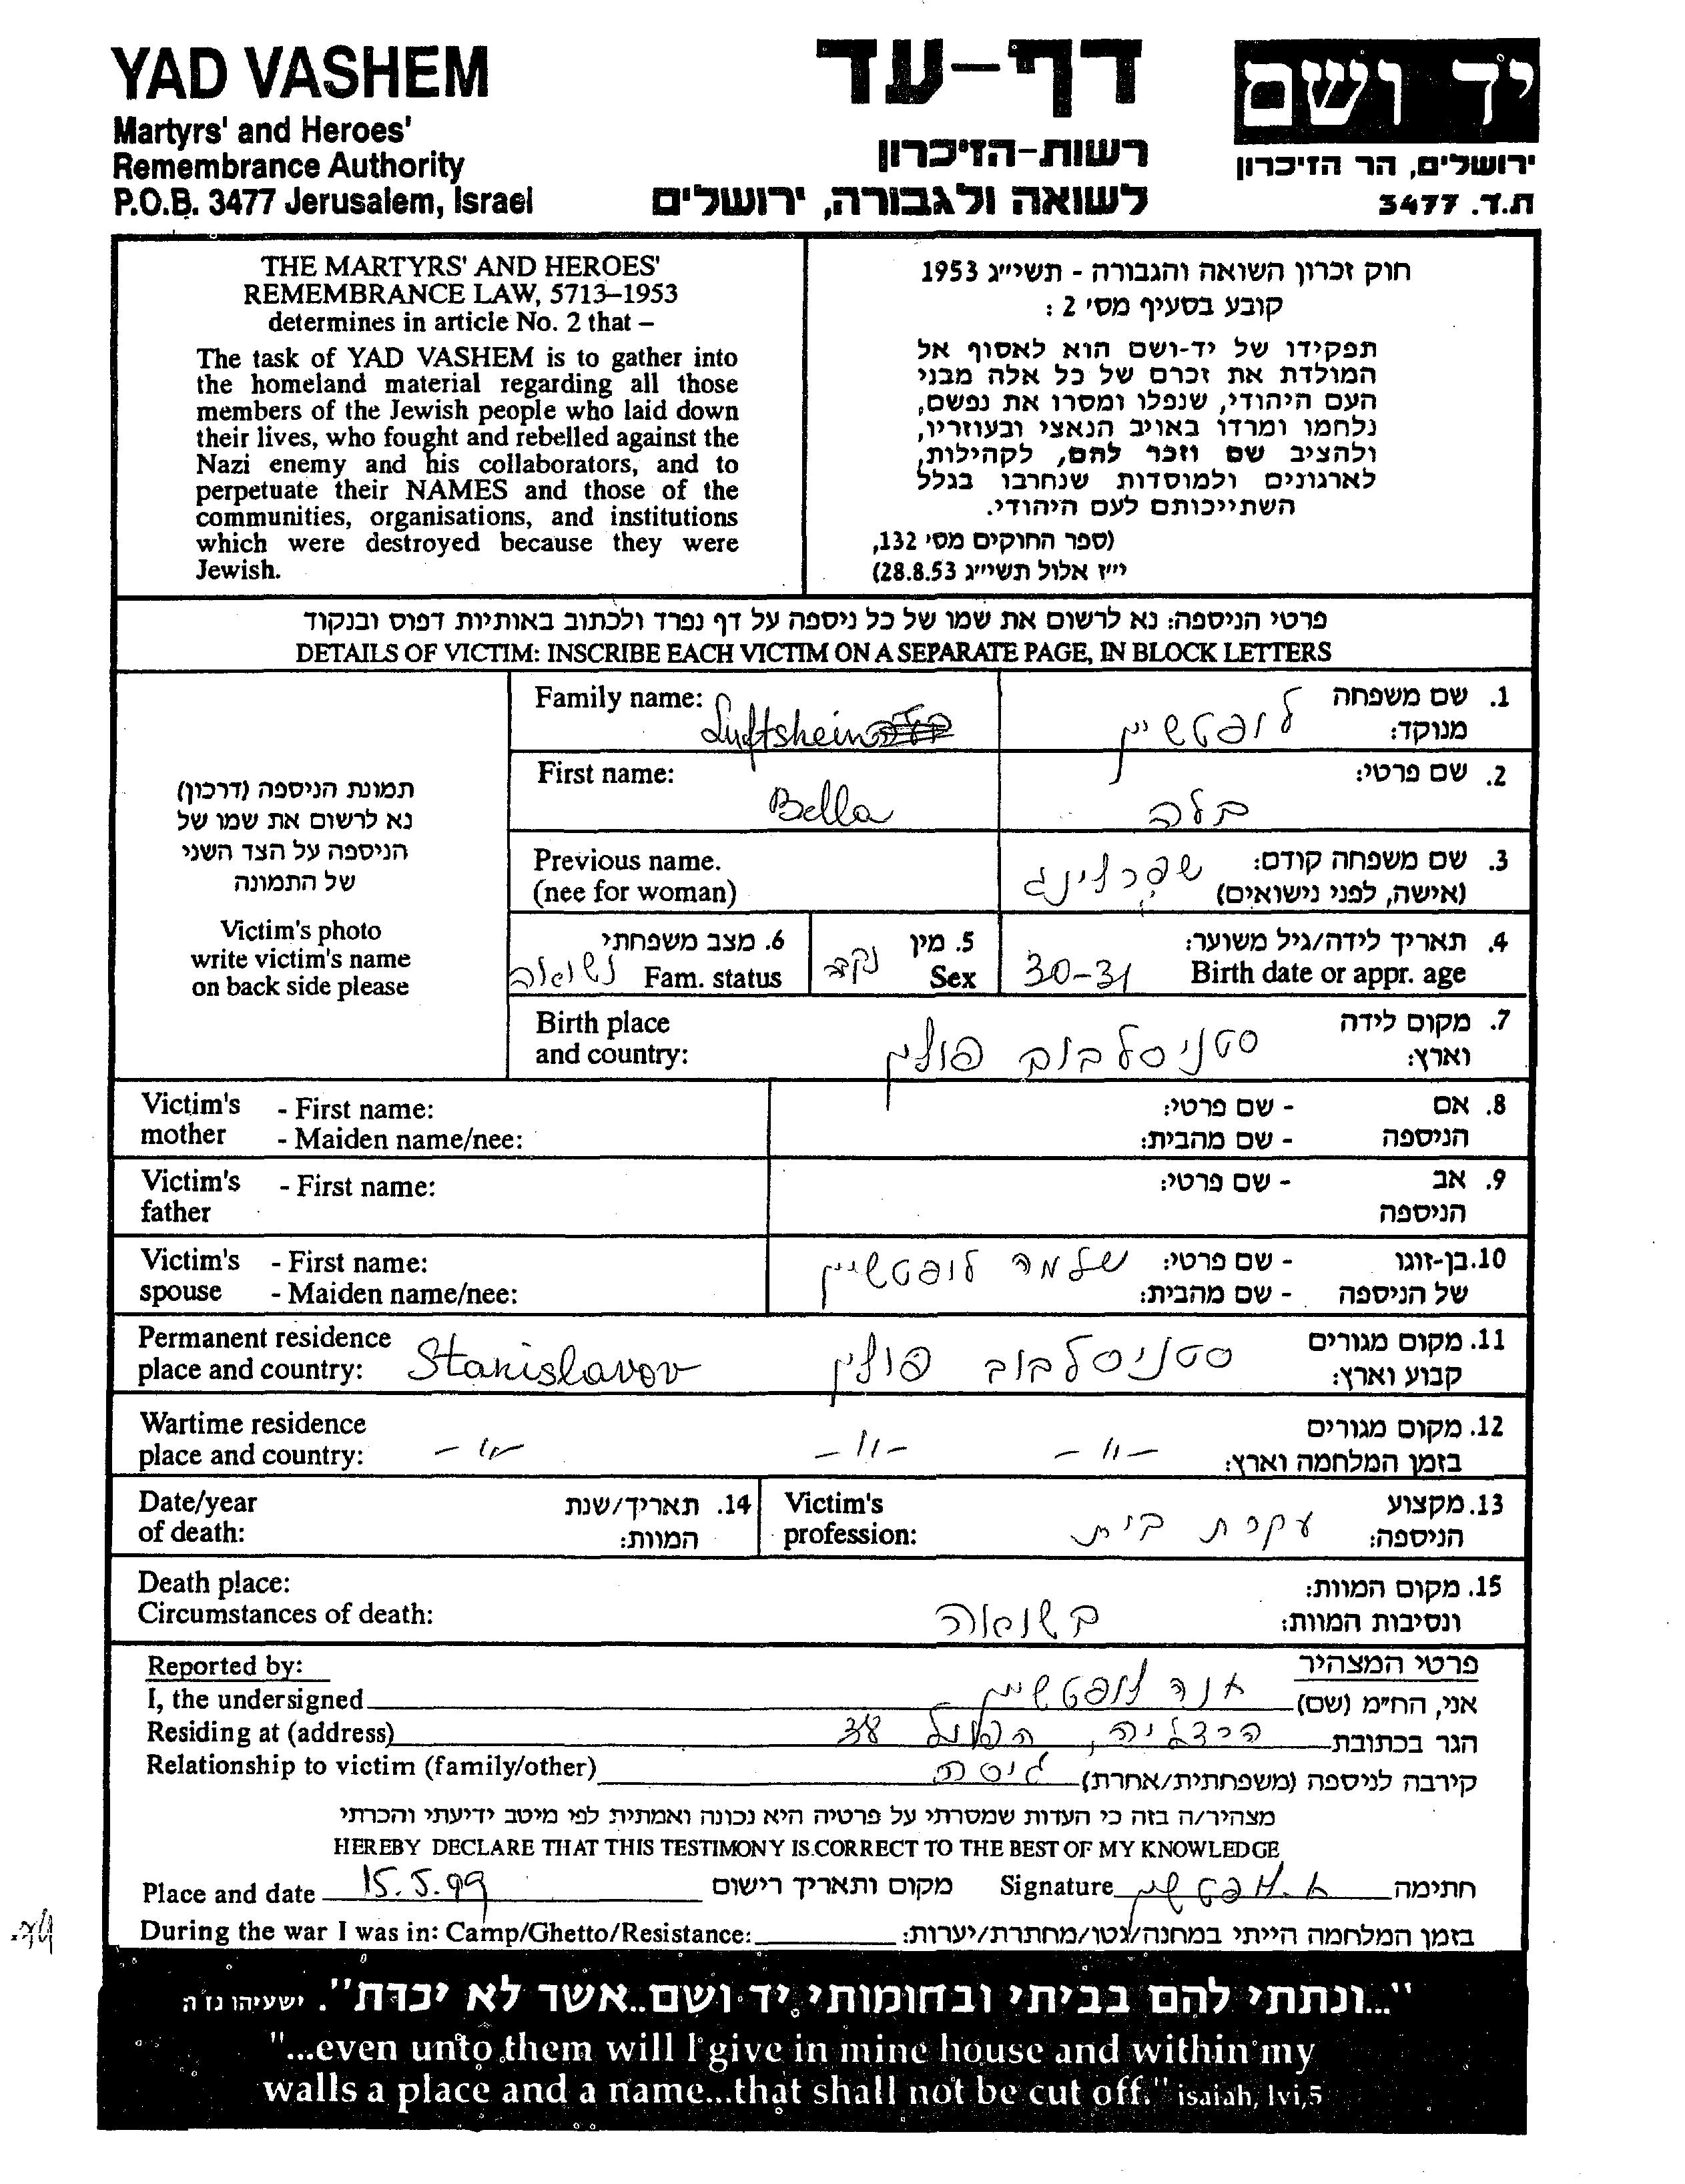 YAD VASHEM
Martyrs' and Heroes'
Remembrance Authority
P.O.B. 3477 Jerusalem, Israel
דף-עד
רשות-הזיכרון
לשואה ולגבורה, ירושלים
יד ושם
ירושלים, הר הזיכרון
ת.ד. 3477
THE MARTYRS' AND HEROES'
REMEMBRANCE LAW, 5713–1953
determines in article No. 2 that –
The task of YAD VASHEM is to gather into
the homeland material regarding all those
members of the Jewish people who laid down
their lives, who fought and rebelled against the
Nazi enemy and his collaborators, and to
perpetuate their NAMES and those of the
communities, organisations, and institutions
which were destroyed because they were
Jewish.
חוק זכרון השואה והגבורה - תשי״ג 1953
קובע בסעיף מס׳ 2 :
תפקידו של יד-ושם הוא לאסוף אל
המולדת את זכרם של כל אלה מבני
העם היהודי, שנפלו ומסרו את נפשם,
נלחמו ומרדו באויב הנאצי ובעוזריו,
ולהציב שם וזכר להם, לקהילות,
לארגונים ולמוסדות שנחרבו בגלל
השתייכותם לעם היהודי.
(ספר החוקים מס׳ 132,
י״ז אלול תשי״ג 28.8.53)
פרטי הניספה: נא לרשום את שמו של כל ניספה על דף נפרד ולכתוב באותיות דפוס ובנקוד
DETAILS OF VICTIM: INSCRIBE EACH VICTIM ON A SEPARATE PAGE, IN BLOCK LETTERS
תמונת הניספה (דרכון)
נא לרשום את שמו של
הניספה על הצד השני
של התמונה
Victim's photo
write victim's name
on back side please
Family name: Luftshein
1. שם משפחה מנוקד: לופטשיין
First name: Bella
2. שם פרטי: בלה
Previous name.
(nee for woman)
3. שם משפחה קודם: שפרלינג
(אישה, לפני נישואים)
4. תאריך לידה/גיל משוער:
Birth date or appr. age 30-31
5. מין Sex נקבה
6. מצב משפחתי
Fam. status נשואה
Birth place
and country:
7. מקום לידה וארץ: סטניסלבוב פולין
Victim's mother - First name:
- Maiden name/nee:
8. אם הניספה - שם פרטי:
- שם מהבית:
Victim's father - First name:
9. אב הניספה - שם פרטי:
Victim's spouse - First name:
- Maiden name/nee:
10. בן-זוגו של הניספה - שם פרטי: שלמה לופטשיין
- שם מהבית:
Permanent residence
place and country: Stanislavov
11. מקום מגורים קבוע וארץ: סטניסלבוב פולין
Wartime residence
place and country: -"-
12. מקום מגורים בזמן המלחמה וארץ: -"- -"-
Date/year
of death:
14. תאריך/שנת המוות:
Victim's
profession:
13. מקצוע הניספה: עקרת בית
Death place:
Circumstances of death:
15. מקום המוות:
ונסיבות המוות: בשואה
Reported by:
פרטי המצהיר
I, the undersigned אנה לופטשיין אני, הח״מ (שם)
Residing at (address) הרצליה, 38 הגר בכתובת
Relationship to victim (family/other) גיסה קירבה לניספה (משפחתית/אחרת)
מצהיר/ה בזה כי העדות שמסרתי על פרטיה היא נכונה ואמתית לפי מיטב ידיעתי והכרתי
HEREBY DECLARE THAT THIS TESTIMONY IS CORRECT TO THE BEST OF MY KNOWLEDGE
Place and date 15.5.99 מקום ותאריך רישום Signature א. לופטשיין חתימה
During the war I was in: Camp/Ghetto/Resistance: בזמן המלחמה הייתי במחנה/גטו/מחתרת/יערות:
"...ונתתי להם בביתי ובחומותי יד ושם..אשר לא יכרת". ישעיהו נו ה
"...even unto them will I give in mine house and within my
walls a place and a name...that shall not be cut off." isaiah, lvi,5